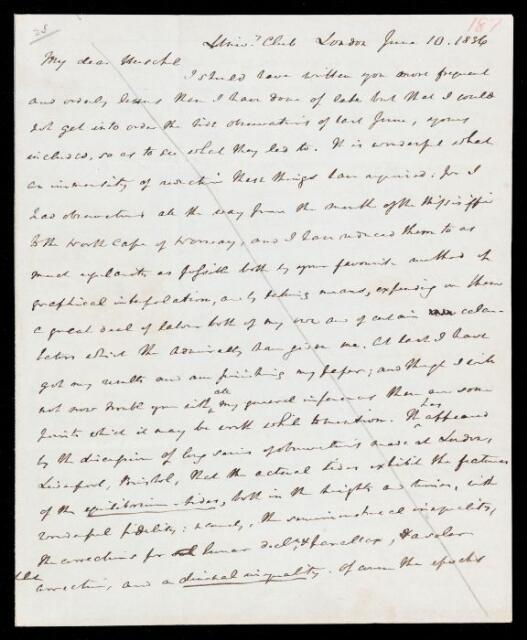 25
187
Univ.y Club London June 10. 1836
My dear Herschel
I should have written you more frequent
and orderly letters than I have done of late but that I could
not get into order the tide observations of last June, yours
included, so as to see what they led to. It is wonderful what
an immensity of reduction these things have required: for I
had observations all the way from the mouth of the Mississippi
to the North Cape of Norway, and I have reduced them to as
much regularity as possible both by your favourite method of
graphical interpolation, and by taking means, expending on them
a great deal of labour both of my own and of certain calcu-
lators which the Admiralty have given me. At last I have
got my results and am finishing my paper; and though I will
not now trouble you with all my general inferences there are some
points which it may be worth while to mention. It has appeared
by the discussion of long series of observations made at London,
Liverpool, Bristol, that the actual tides exhibit the features
of the equilibrium-tides, both in the heights and times, with
wonderful fidelity: namely, the semimenstrual inequality,
the corrections for lunar decl.n & parallax, & a solar
correction, and a diurnal inequality. Of course the epochs